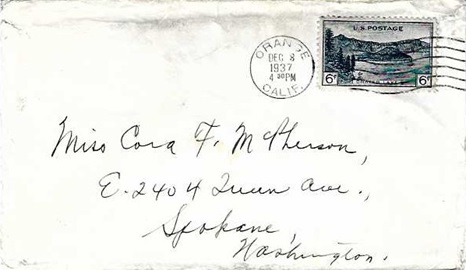 ORANGE
DEC 8
1937
4 30PM
CALIF.
U.S. POSTAGE
6¢ CRATER LAKE 6¢
Miss Cora F. McPherson,
E. 2404 Queen Ave.,
Spokane,
Washington.